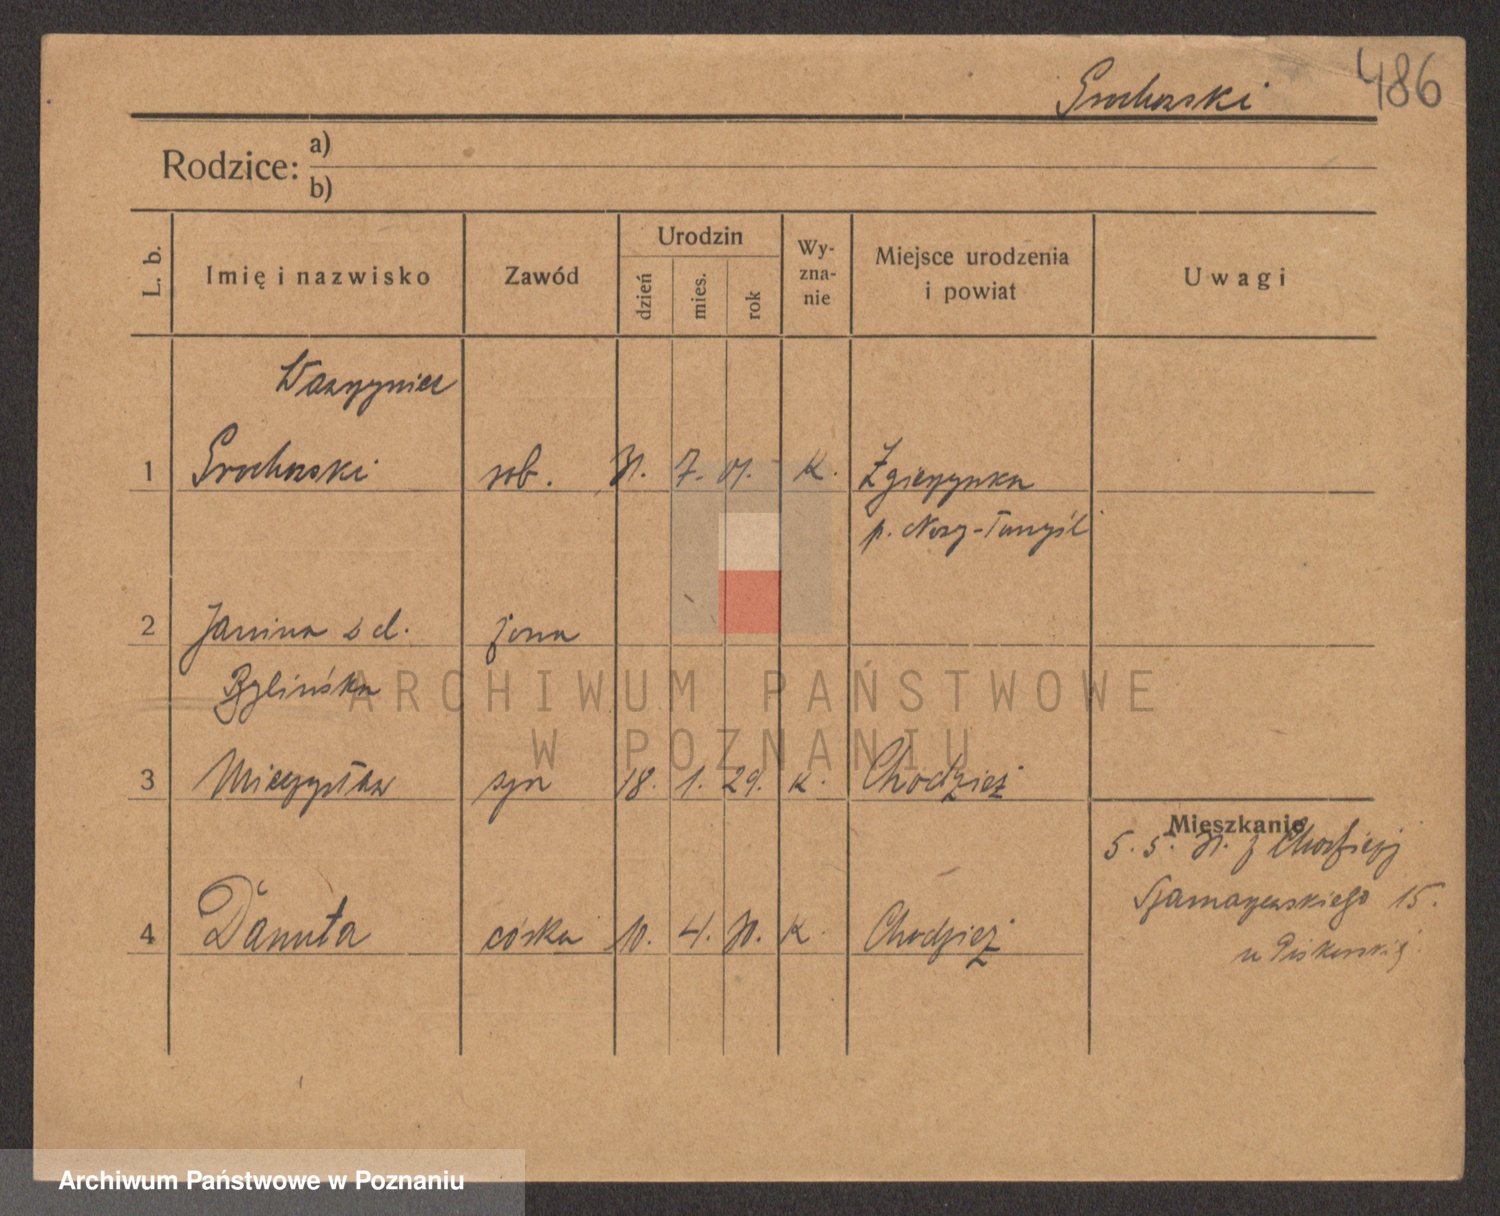 Grochowski 486
Rodzice: a)
b)
L. b. Imię i nazwisko Zawód Urodzin dzień mies. rok Wy-zna-nie Miejsce urodzenia i powiat Uwagi
Wawrzyniec
1 Grochowski rob. 31. 7. 01. K. Zgierzynka
p. Nowy-Tomyśl
2 Janina z d. żona
Bylińska
ARCHIWUM PAŃSTWOWE
W POZNANIU
3 Mieczysław syn 18. 1. 29. K. Chodzież
Mieszkanie
5. 5. 31. z Chodzieży
4 Danuta córka 10. 4. 30. K. Chodzież
Szamarzewskiego 15.
u Piskorskiej
Archiwum Państwowe w Poznaniu